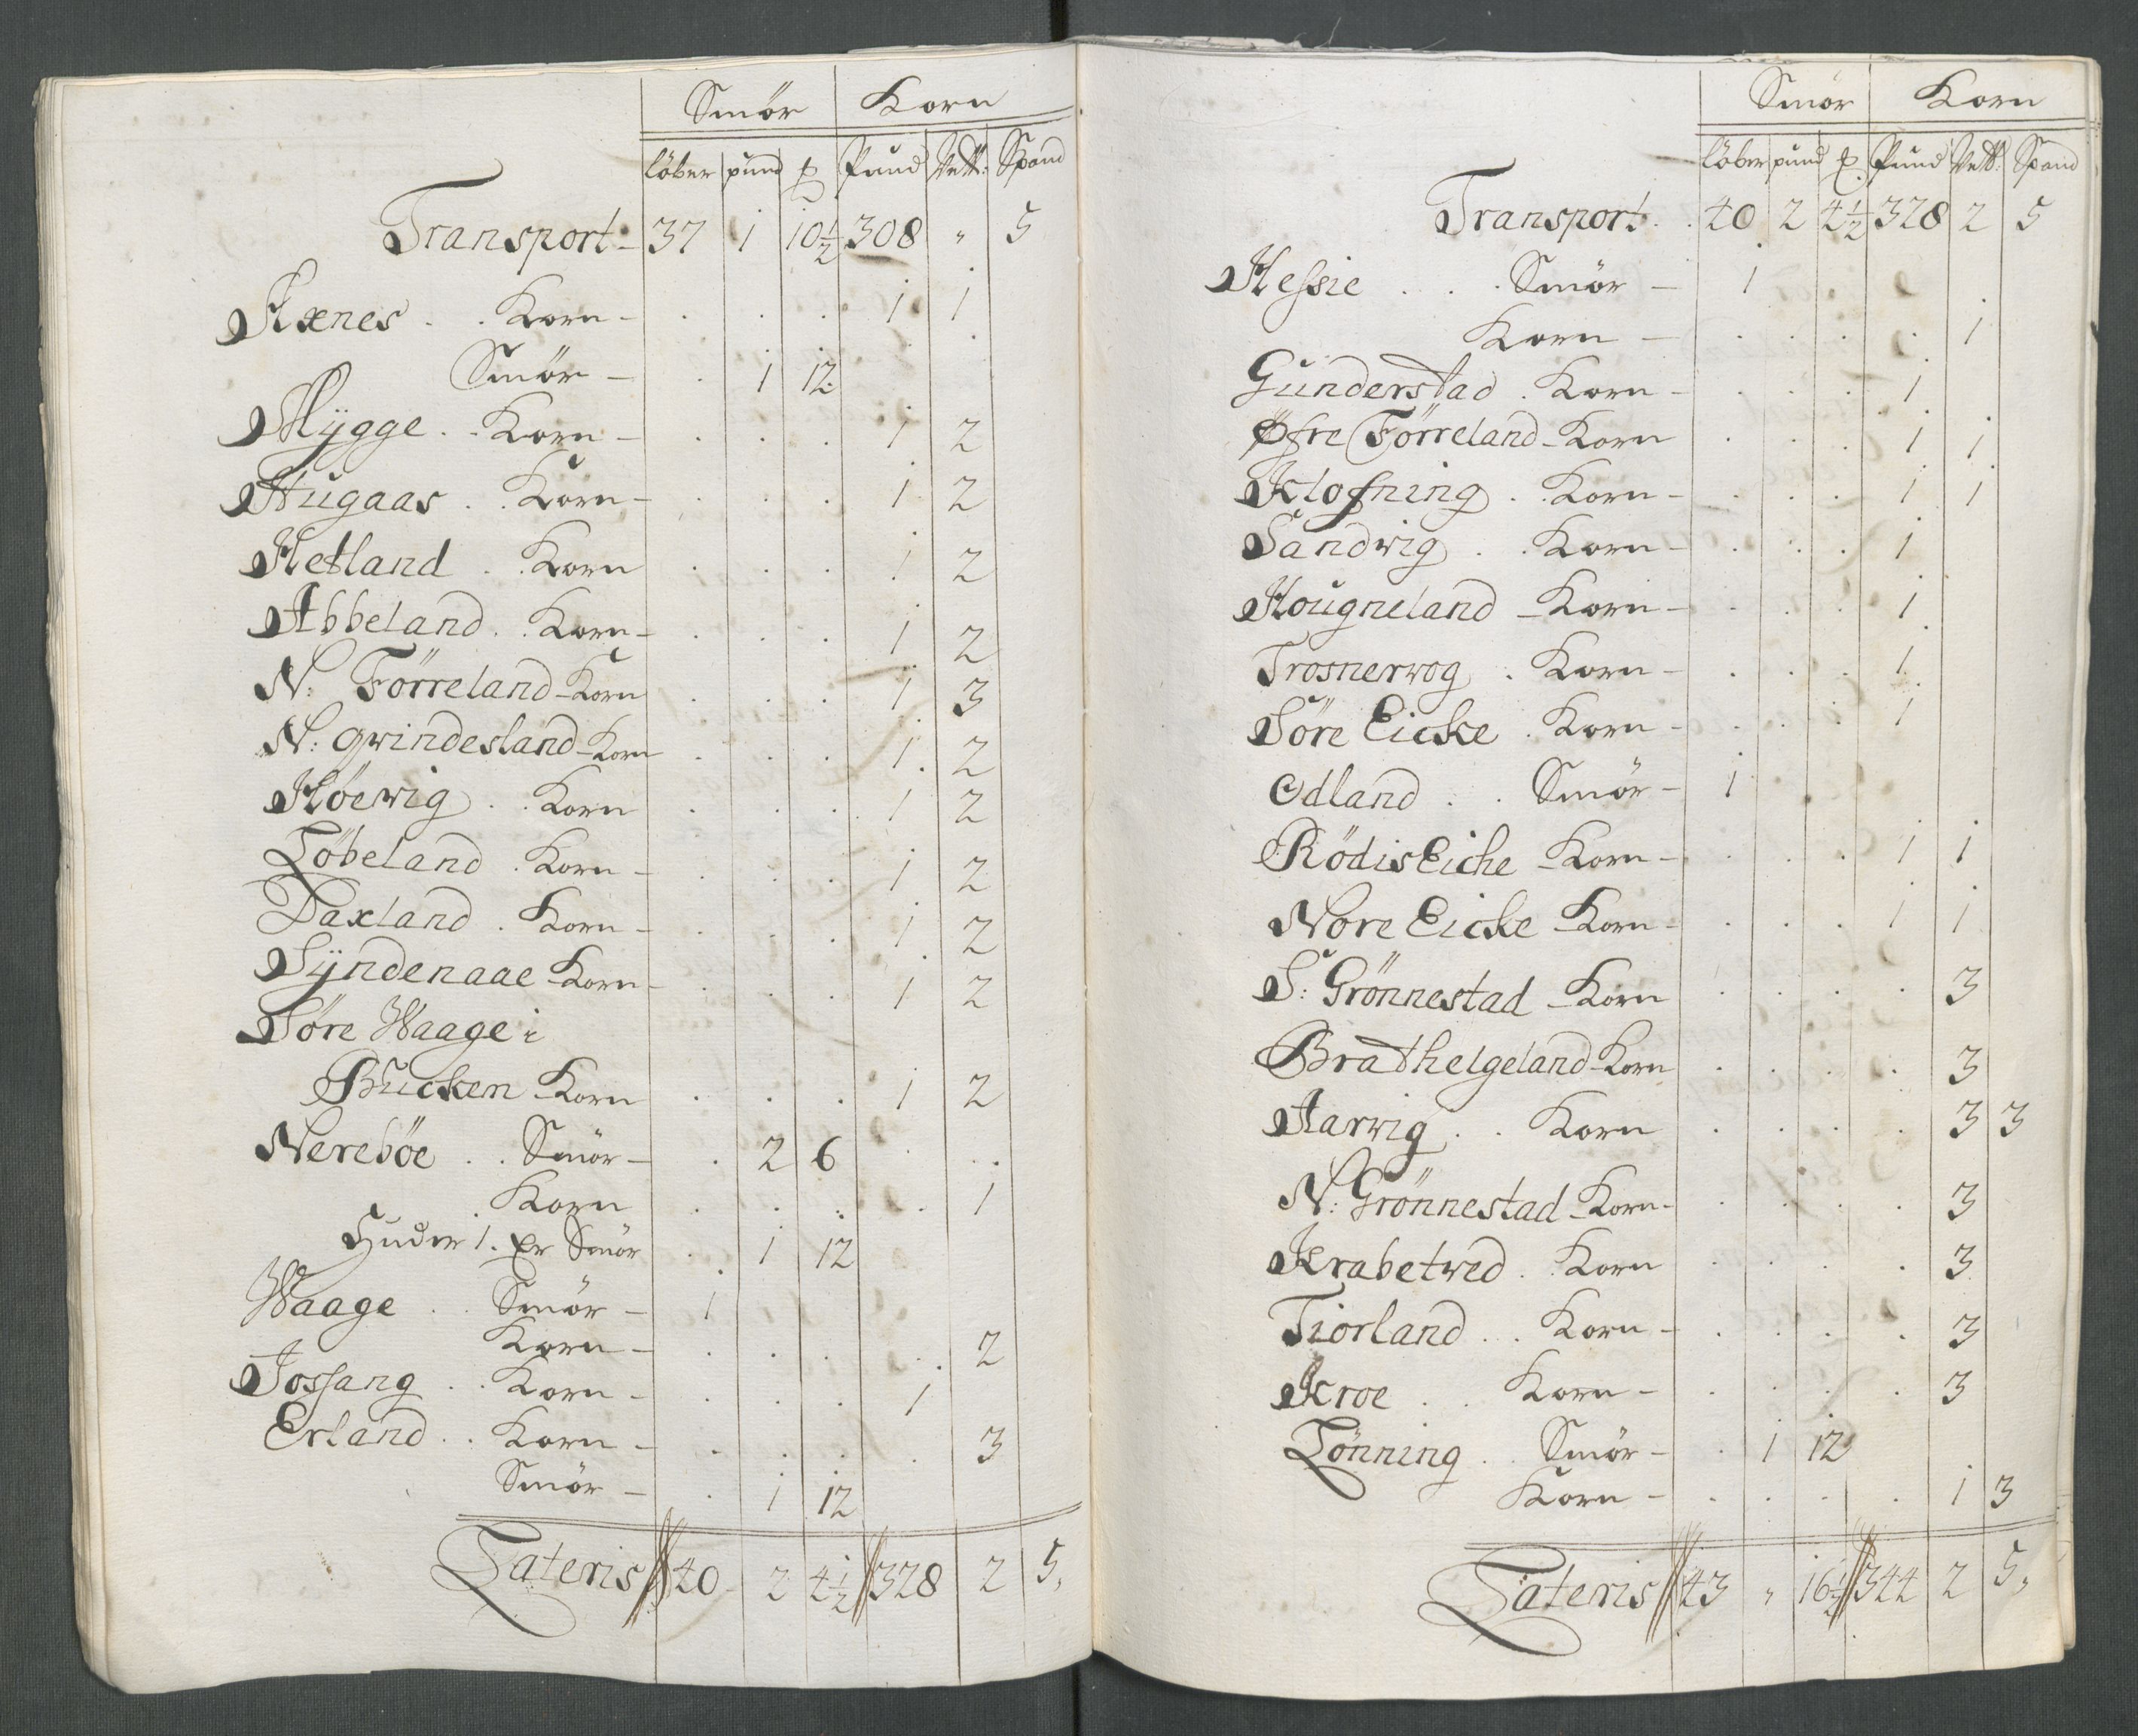 Smör Korn
löber pund ℔ Pund Vett: Spand
Transport 37 1 10½ 308 " 5
Axnes . . Korn - 1 1
Smör - 1 12
Mÿgge . . Korn - 1 2
Hugaas . . Korn - 1 2
Hetland . . Korn 1 2
Abbeland . . Korn - 1 2
N: Förreland - Korn 1 3
N: qwindesland - Korn 1 2
Höewig . . Korn 1 2
Löbeland . Korn - 1 2
Daxland . Korn - 1 2
Sÿndenaae - Korn - 1 2
Söre Waage i
Bucken - Korn 1 2
Nereböe . . Smör - 2 6
Korn 1
Huder 1. Er Smör 1 12
Waage . . Smör - 1
Korn - 2
Jossang . . Korn - 1
Erland . . Korn - 3
Smör - 1 12
Lateris 40 2 4½ 328 2 5,
Smör Korn
löber pund ℔ Pund Vett: Spand
Transport . . 40 2 4½ 328 2 5
Hessie . . . Smör - 1
Korn - 1
Gunderstad . Korn - 1
Øfre Förreland - Korn 1 1
Klofning . . Korn - 1 1
Sandwig . . Korn - 1
Hougneland - Korn - 1
Trosnerwog . Korn - 1
Söre Eicke . Korn - 1
Odland . . Smör - 1
Rödis Eiche - Korn - 1 1
Nore Eicke - Korn - 1 1
S: Grönnestad - Korn 3
Brathelgeland - Korn 3
Aarwig . . Korn 3 3
N: Grönnestad - Korn - 3
Krabetwed . . Korn 3
Tiorland . . Korn - 3
Kroe . . Korn - 3
Lönning . . Smör - 1 12
Korn - 1 3
Lateris 43 " 16½ 344 2 5,